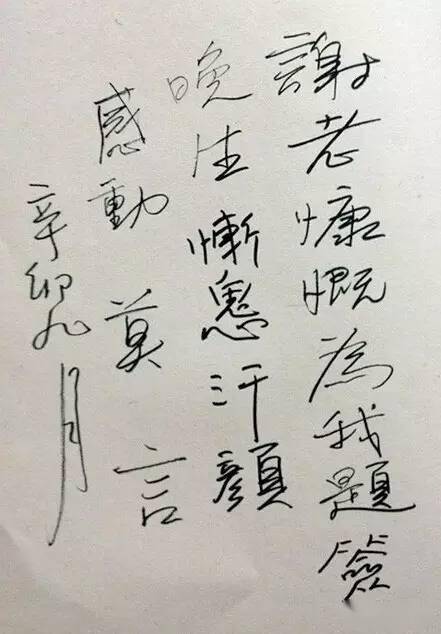 謝老慷慨為我題簽
晚生慚愧汗顏
感動 莫言
辛卯九月